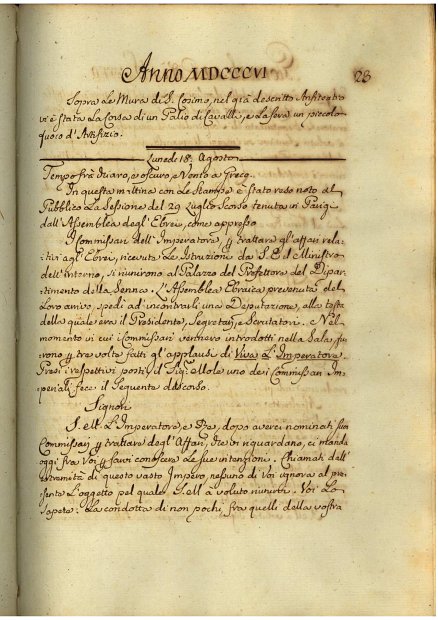 Anno MDCCCVI
23
Sopra Le Mura di S. Cosimo, nel già descritto Anfiteatro
vi è stata La Corsa di un Palio di Cavalli, e La sera un piccolo
fuoco d'Artifizio.
Lunedì 18. Agosto
Tempo frà chiaro, e oscuro, e Vento a Grec.
In questa mattina con Le Stampe è stato reso noto al
Pubblico La Sessione del 29 Luglio scorso tenuta in Parig.
dall'Assemblea degl'Ebrei, come appresso
I Commissari dell'Imperatore, p trattare gl'affari rela-
tivi agl'Ebrei, ricevute Le Istruzioni da S.E. il Ministro
dell'Interno, si riunirono al Palazzo del Prefettora del Dipar-
timento della Senna. L'Assemblea Ebraica prevenuta del
Loro arrivo, spedì ad incontrarli una Deputazione, alla testa
della quale era il Presidente, Segretari, e Scrutatori. Nel
momento in cui i Commissari vennero introdotti nella Sala, fu-
rono p tre volte fatti gl'applausi di Viva L'Imperatore.
Presi i respettivi posti, il Sig. Mole uno dei Commissari Im-
periali fece il Seguente discorso.
Signori
S.M. L'Imperatore e Re, dopo averci nominati suoi
Commissarj p trattare degl'Affari, che vi riguardano, ci manda
oggi fra Voi p farvi conoscere Le sue intenzioni. Chiamati dall'
estremità di questo vasto Impero, nessuno di Voi ignora al pre-
sente L'oggetto pel quale S.M. à voluto riunirvi. Voi Lo
sapete. La condotta di non pochi fra quelli della vostra